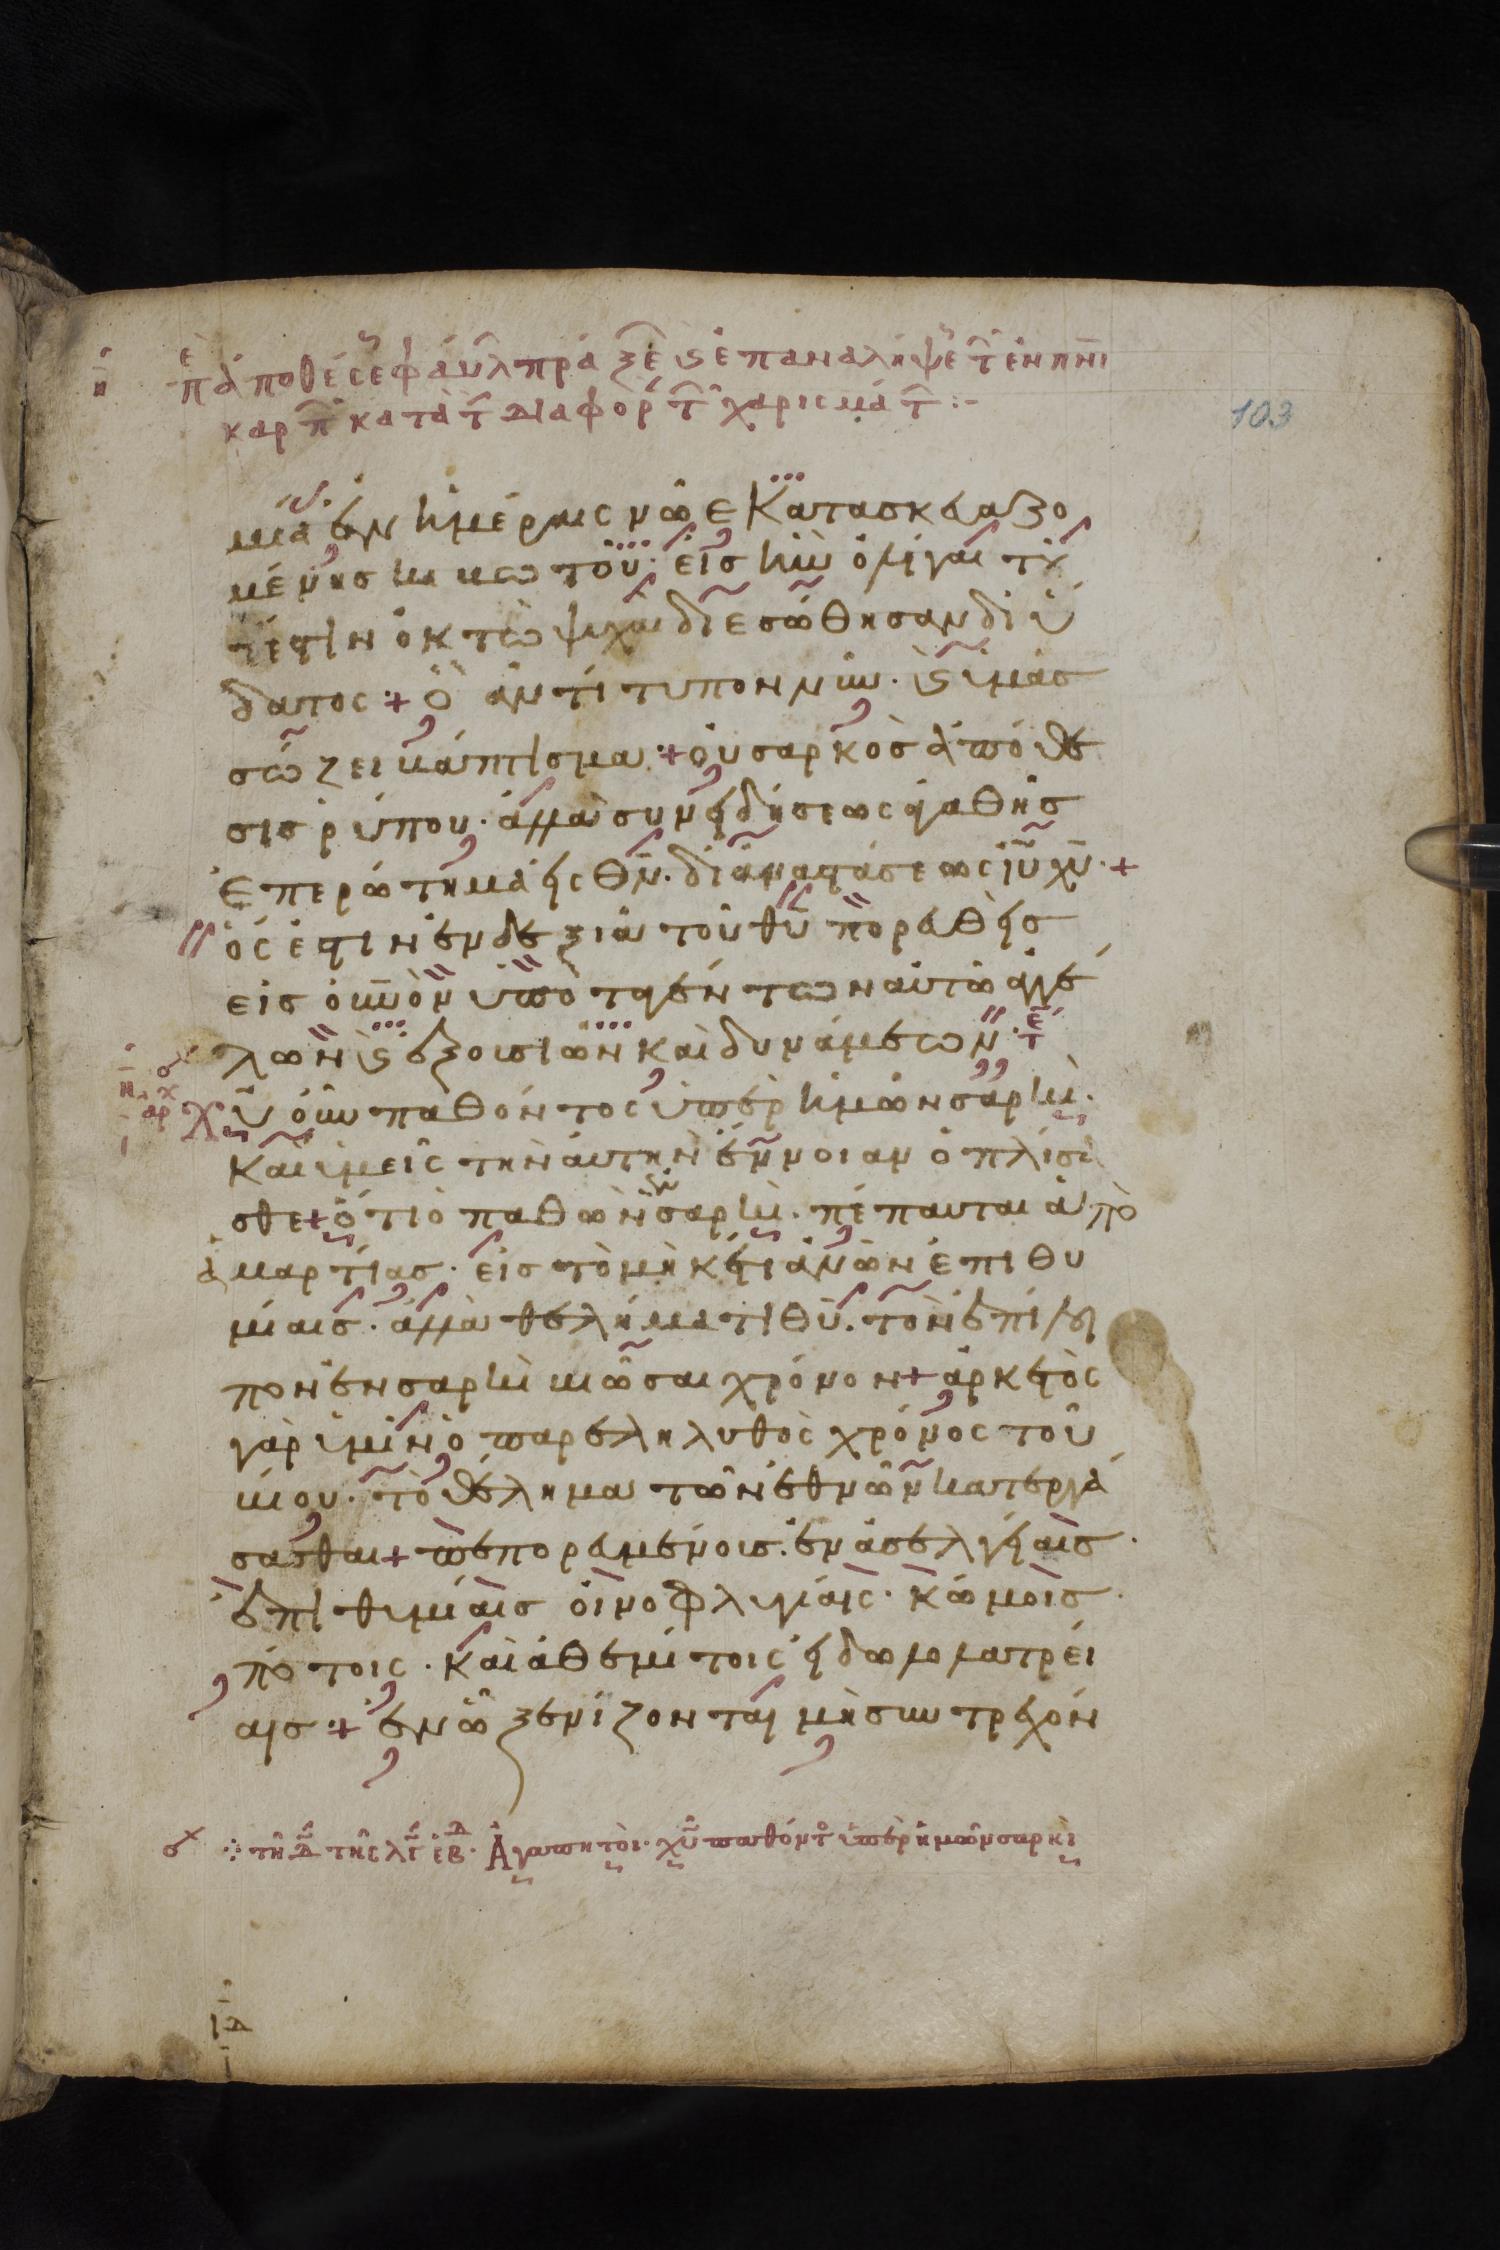 η πε ἀποθέσε φαύλ πράξε ϗ ἐπαναλήψε τ ἐν πνι
καρπ κατὰ τ διαφορ τ χαρισμάτ :-
103
μία ἐν ἡμέραις νῶε κατασκευαζο
μένης κιβωτοῦ· εἰς ἣν ὀλίγαι του
τέστιν ὀκτὼ ψυχαὶ διεσώθησαν δι ὕ
δατος + ὃ ἀντίτυπον νῦν· ϗ ὑμᾶς
σώζει βάπτισμα + οὐ σαρκὸς ἀπόθε
σις ῥύπου· ἀλλὰ συνειδήσεως ἀγαθῆς
ἐπερώτημα εἰς θν· δι ἀναστάσεως ιυ χυ· +
ὅς ἐστιν ἐν δεξιᾶ τοῦ θυ πορευθεὶς
εἰς οὐνον ὑποταγέντων αὐτῶ ἀγγέ
λων ϗ ἐξουσιῶν καὶ δυνάμεων· τε
η αρχ
χυ οὖν παθόντος ὑπὲρ ἡμῶν σαρκὶ·
καὶ ὑμεῖς τὴν αὐτὴν ἔννοιαν ὁπλίσα
σθε + ὅτι ὁ παθὼν ἐν σαρκὶ· πέπαυται ἀπὸ
ἁμαρτίας· εἰς τὸ μηκέτι ἀνων ἐπιθυ
μίαις· ἀλλὰ θελήματι θυ· τὸν ἐπίλοι
πον ἐν σαρκὶ βιῶσαι χρόνον + ἀρκετὸς
γὰρ ὑμῖν ὁ παρεληλυθὸς χρόνος τοῦ
βίου· τὸ θέλημα τῶν ἐθνῶν κατεργά
σασθαι + πεπορευμένοις· ἐν ἀσελγείαις·
ἐπιθυμίαις οἰνοφλυγίαις· κώμοις·
πότοις· καὶ ἀθεμίτοις εἰδωλολατρεί
αις + ἐν ᾧ ξενίζονται μὴ συντρεχόν
τῆ δ τῆς λγ ἑβδ· Ἀγαπητοὶ· χυ παθόντο ὑπὲρ ἡμῶν σαρκὶ
ιδ